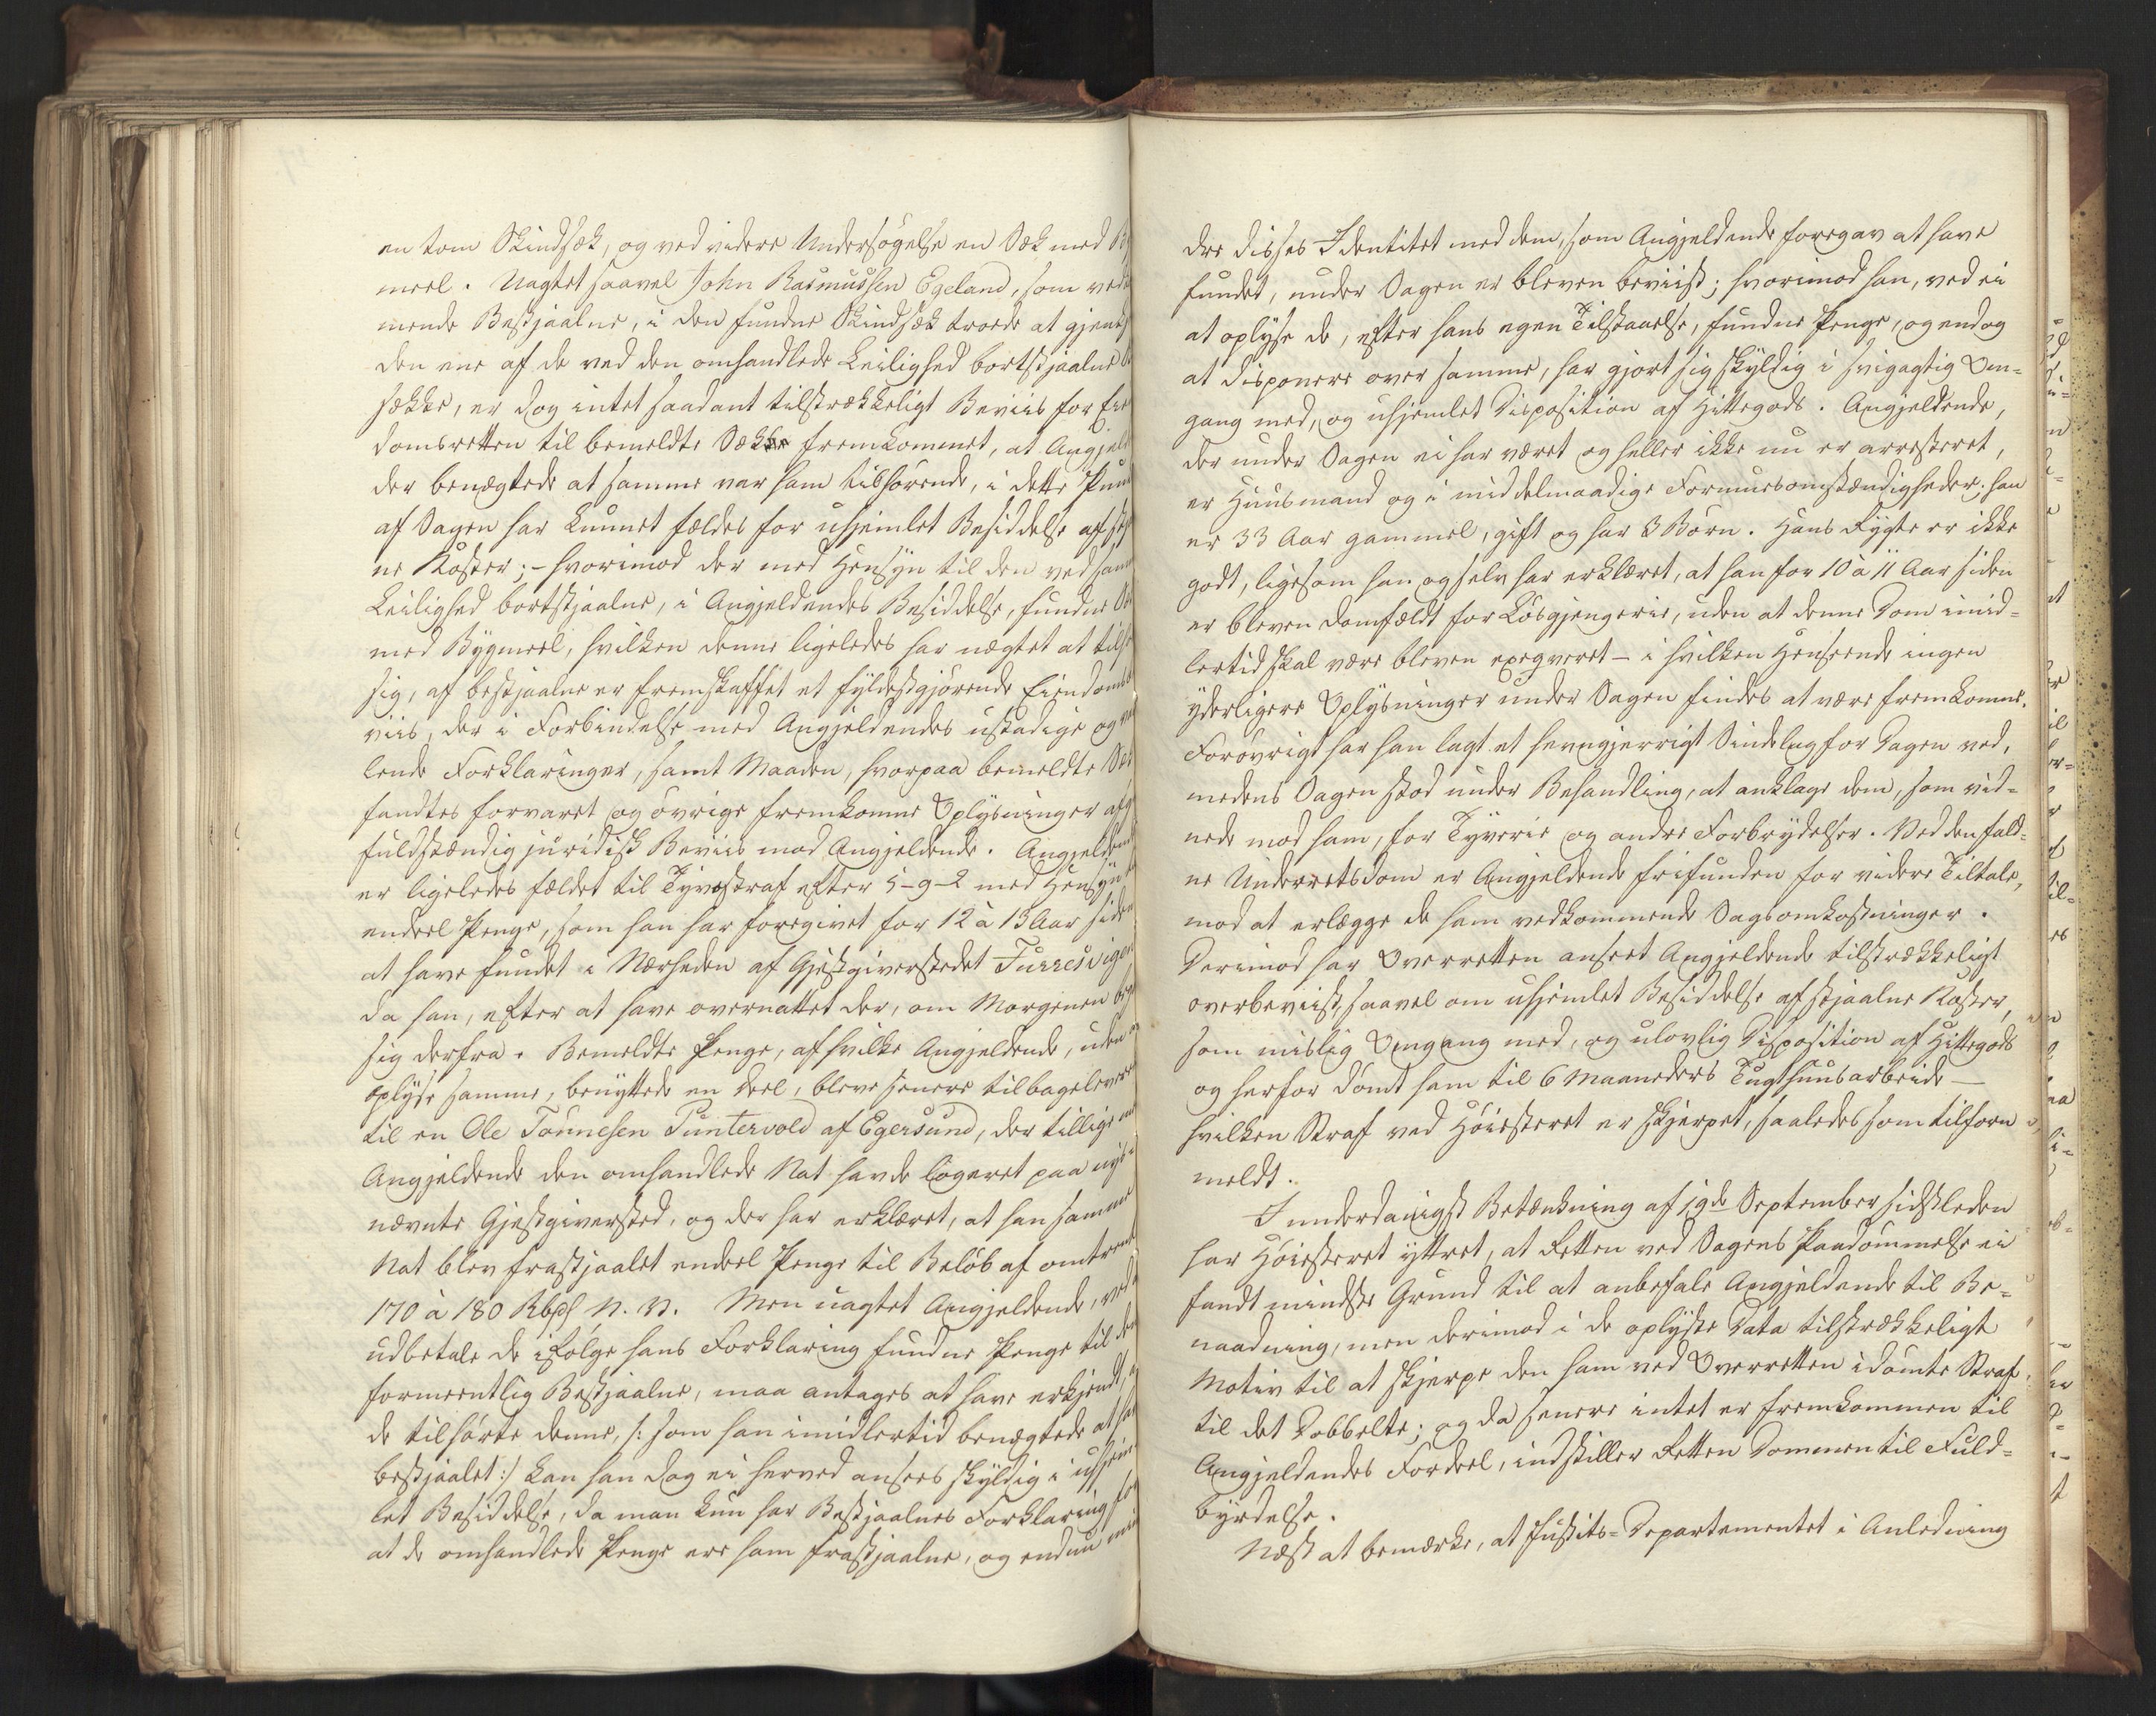 en tom Skindsæk, og ved videre Undersøgelse en Sæk med
meel. Uagtet saavel John Rasmussen Egeland, som ved
mende Bestjaalne, i den fundne Skindsæk troede at gjenk
den ene af de ved den omhandlede Leilighed bortstjaalne
sække, er dog intet saadant tilstrækkeligt Beviis for Eie
domsretten til bemeldte Sække fremkommet, at Angjeld
der benægtede at samme var ham tilhørende, i dette Punk
af Sagen har kunnet fældes for uhjemlet Besiddelse af stj
ne Koster; - hvorimod der med Hensyn til den ved samm
Leilighed bortstjaalne, i Angjeldendes Besiddelse, fundne Sæ
med Bygmeel, hvilken denne ligeledes har nægtet at tilh
sig, af bestjaalne er fremskaffet et fyldestgjørende Eiendoms
viis, der i Forbindelse med Angjeldendes ustadige og va
lende Forklaringer, samt Maaden, hvorpaa bemeldte Sæk
fandtes forvaret og øvrige fremkomne Oplysninger afg
fuldstændig juridisk Beviis mod Angjeldende. Angjeldende
er ligeledes fældet til Tyvsstraf efter 5-9-2 med Hensyn
endeel Penge, som han har foregivet for 12 à 13 Aar siden
at have fundet i Nærheden af Gjestgiverstedet Turresvigen
da han, efter at have overnattet der, om Morgenen beg
sig derfra. Bemeldte Penge, af hvilke Angjeldende, uden
oplyse samme, benyttede en Deel, bleve senere tilbageleveret
til en Ole Tönnesen Puntervold af Egersund, der tillige med
Angjeldende den omhandlede Nat havde logeret paa nys-
nævnte Gjestgiversted, og der har erklæret, at han samme
Nat blev frastjaalet endeel Penge til Beløb af omtrent
170 à 180 Rbdl N. V. Men uagtet Angjeldende, ved
udbetale de ifølge hans Forklaring fundne Penge til den
formeentlig Bestjaalne, maa antages at have erkjendt,
de tilhørte denne, /: som han imidlertid benægtede at have
bestjaalet :/ kan han dog ei herved ansees skyldig i uhjem
let Besiddelse, da man kun har Bestjaalnes Forklaring for
at de omhandlede Penge ere ham frastjaalne, og endnu min
dre disses Identitet med dem, som Angjeldende foregav at have
fundet, under Sagen er bleven beviist; hvorimod han, ved ei
at oplyse de, efter hans egen Tilstaaelse, fundne Penge, og endog
at disponere over samme, har gjort sig skyldig i svigagtig Om-
gang med, og uhjemlet Disposition af Hittegods. Angjeldende,
der under Sagen ei har været og heller ikke nu er arresteret,
er Huusmand og i middelmaadige Formuesomstændigheder. han
er 33 Aar gammel, gift og har 3 Børn. Hans Rygte er ikke
godt, ligesom han og selv har erklæret, at han for 10 à 11 Aar siden
er bleven domfældt for Løsgjengerie, uden at denne Dom imid-
lertid skal være bleven exeqveret - i hvilken Henseende ingen
yderligere Oplysninger under Sagen findes at være fremkomne.
Forøvrigt har han lagt et hevngjerrigt Sindelag for Dagen ved,
medens Sagen stod under Behandling, at anklage dem, som vid-
nede mod ham, for Tyverie og andre Forbrydelser. Ved den fald-
ne Underretsdom er Angjeldende frifunden for videre Tiltale,
mod at erlægge de ham vedkommende Sagsomkostninger.
Derimod har Overretten anseet Angjeldende tilstrækkeligt
overbeviist, saavel om uhjemlet Besiddelse af stjaalne Koster,
som mislig Omgang med, og ulovlig Disposition af Hittegods
og herfor dømt ham til 6 Maaneders Tugthuusarbeide -
hvilken Straf ved Høiesteret er skjerpet, saaledes som tilforn
meldt.
I underdanigst Betænkning af 19de September sidstleden
har Høiesteret yttret, at Retten ved Sagens Paadømmelse ei
fandt mindste Grund til at anbefale Angjeldende til Be-
naadning, men derimod i de oplyste Data tilstrækkeligt
Motiv til at skjerpe den ham ved Overretten idømte Straf
til det Dobbelte; og da senere intet er fremkommen til
Angjeldendes Fordeel, indstiller Retten Dommen til Fuld-
byrdelse.
Næst at bemærke, at Justits-Departementet i Anledning